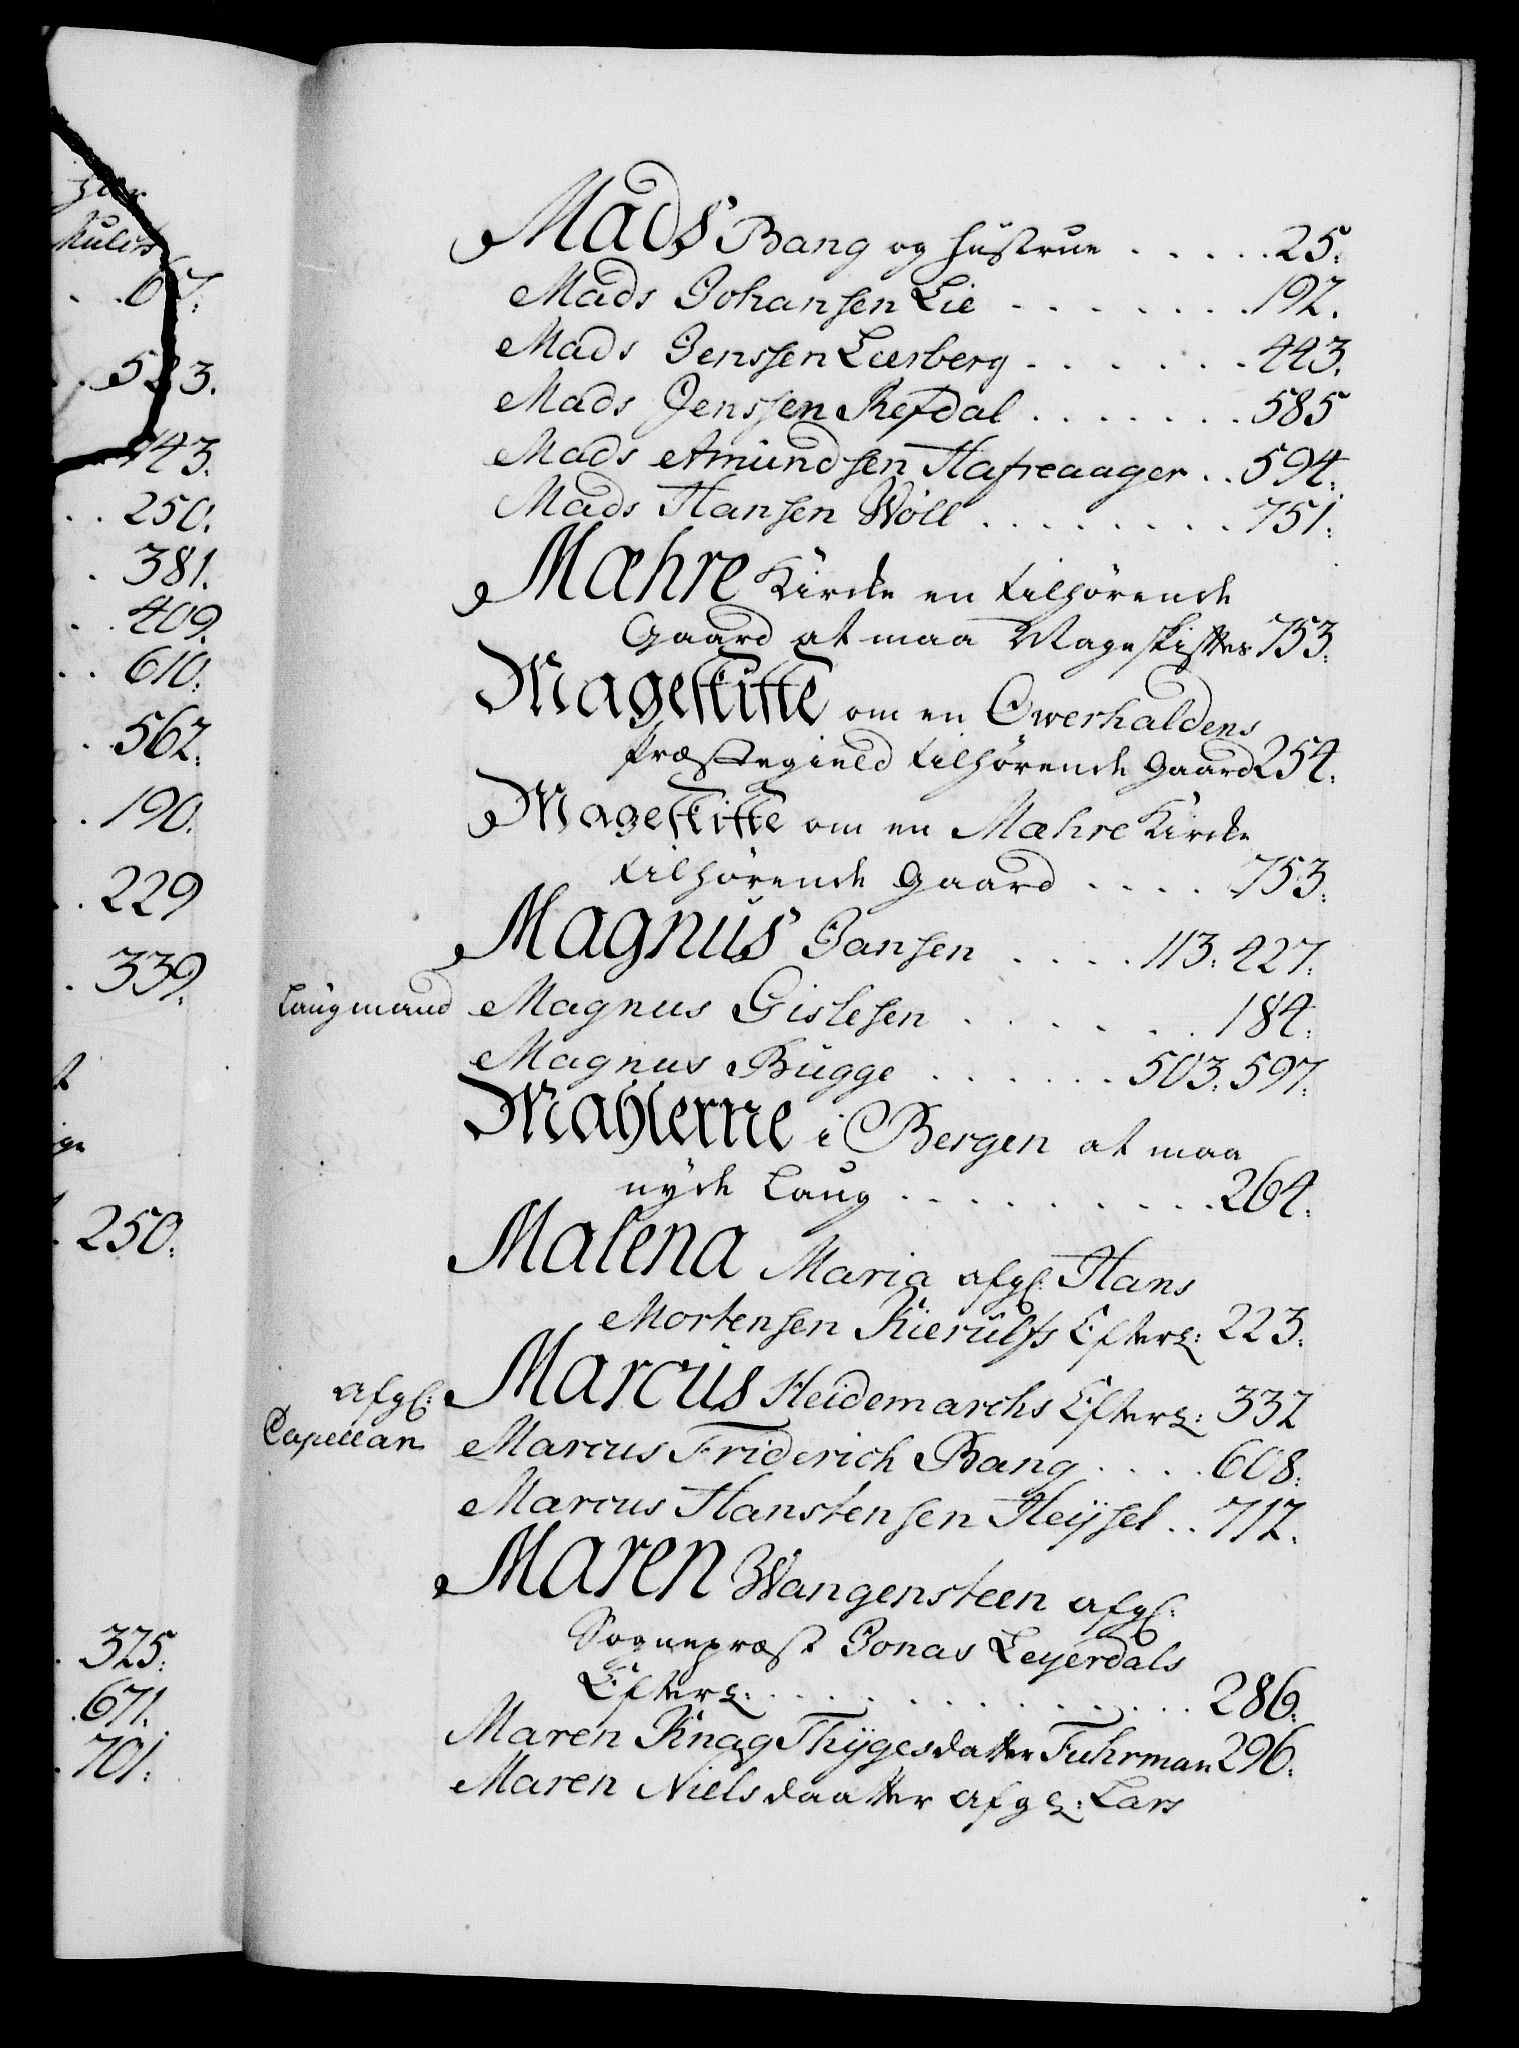 67.
583.
743.
250.
381.
409.
610.
562.
190.
229
339.
250.
325.
671.
701.
Mads Bang og Hüstrue . . . . . 25.
Mads Johansen Lie . . . . . . . 192.
Mads Jenssen Lærberg . . . . . . . 443.
Mads Jenssen Refdal . . . . . . . 585
Mads Amündsen Hafreaager . . 594.
Mads Hansen Wöll . . . . . . . . 751.
Mæhre Kircke en tilhørende
Gaard at maa Mageskiftes 753.
Mageskifte om en Owerhaldens
Præstegield tilhørende Gaard 254.
Mageskifte om en Mæhre Kircke
tilhørende Gaard . . . . 753.
Magnüs Jansen . . . . 113. 427.
Laugmand Magnus Gislesen . . . . . . 184.
Magnus Bügge . . . . . . 503. 597.
Mahlerne i Bergen at maa
nyde Laug . . . . . . . . . . 264.
Malena Maria afgl: Hans
Mortensen Kierülfs Efterl: 223.
afgl: Marcüs Heidemarchs Efterl: 332
Capellan Marcus Friderich Bang . . . . 608.
Marcus Hanstensen Heÿsel . . 712.
Maren Wangensteen afgl:
Sognepræst Jonas Leyerdals
Efterl: . . . . . . . . . . . . . 286.
Maren Knag Thÿgesdatter Fuhrman 296.
Maren Nielsdaatter afgl: Lars